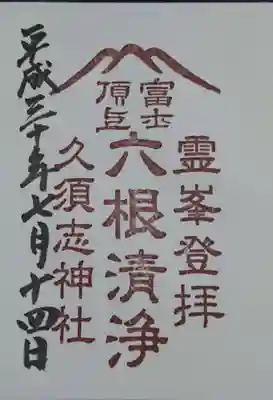 霊峯登拝
富士
頂上
六根清浄
久須志神社
平成三十年七月十四日